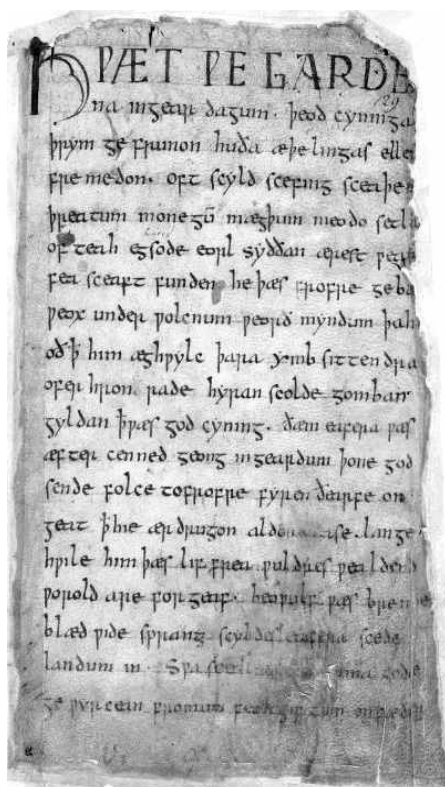 HǷÆT ǷE GARDE
na ingear dagum. þeod cyninga
þrym ge frunon huða æþelingas ellen
fremedon. oft scyld scefing sceaþen
þreatum monegū mægþum meodo setla
of teah egsode eorl syððan ærest
fea sceaft funden he þæs frofre geba
ƿeox under ƿolcnum ƿeorð myndum þah
oð ꝥ him æghƿylc þara ymb sittendra
ofer hron rade hyran scolde gomban
gyldan ꝥ ƿæs god cyning. ðæm eafera ƿæs
æfter cenned geong ingeardum þone god
sende folce tofrofre fyren ðearfe on
geat ꝥ hie ær drugon lange
hƿile him þæs lif frea ƿuldres ƿealdend
ƿorold are forgeaf. beoƿulf ƿæs breme
blæd ƿide sprang scyldes eafera scede
landum in. Sƿa sceal
ge ƿyrcean fromum feoh giftum